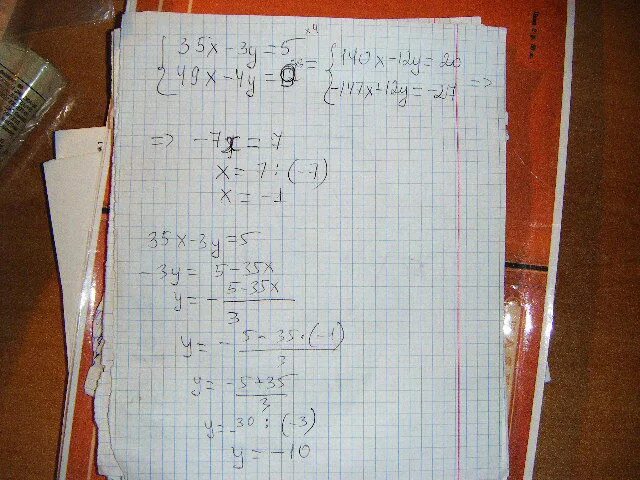 35x-3y=5 x4
49x-4y=9 = 140x-12y=20
-147x+12y=-27 =>
=> -7x=7
x=7:(-7)
x=-1
35x-3y=5
-3y=5-35x
y=-5-35x/3
y=-5-35·(-1)/3
y=-5+35/3
y=30:(-3)
y=-10